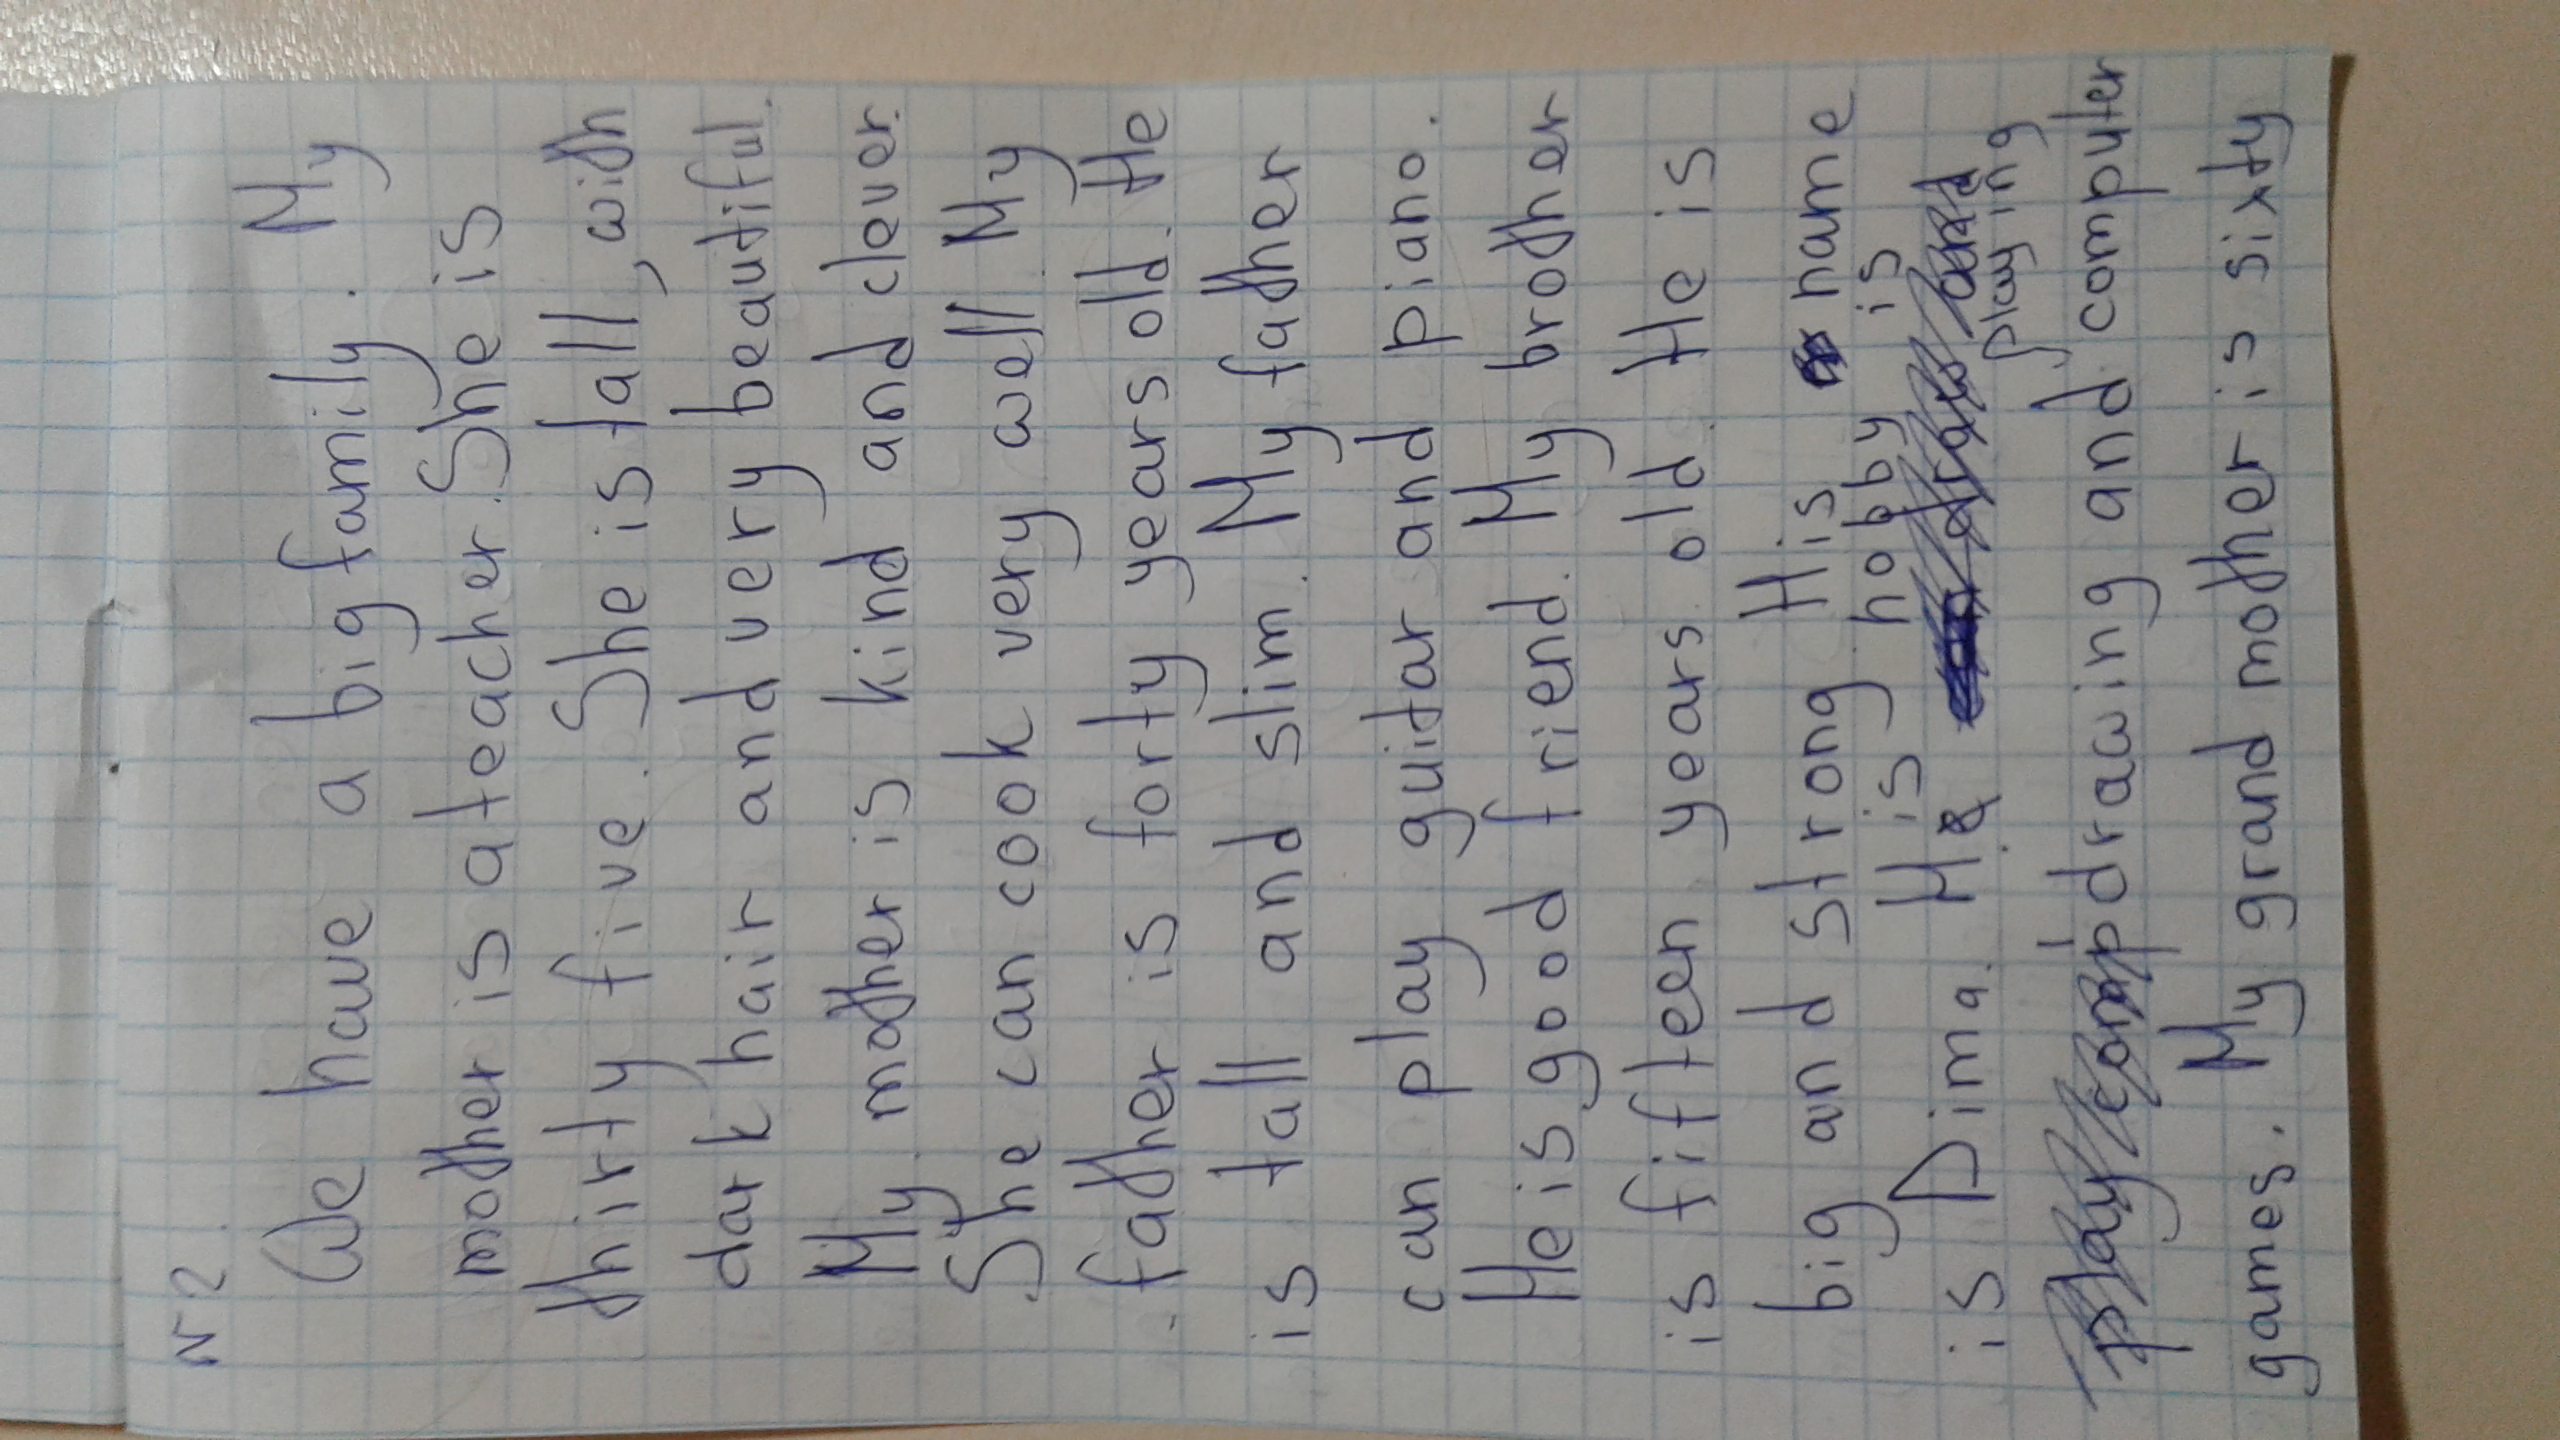 N 2.
We have a big family. My
mother is a teacher. She is
thirty five. She is tall, with
dark hair and very beautiful.
My mother is kind and clever.
She can cook very well. My
father is forty years old. He
is tall and slim. My father
can play guitar and piano.
He is good friend. My brother
is fifteen years old. He is
big and strong. His name
is Dima. His hobby is
playing
drawing and computer
games. My grand mother is sixty